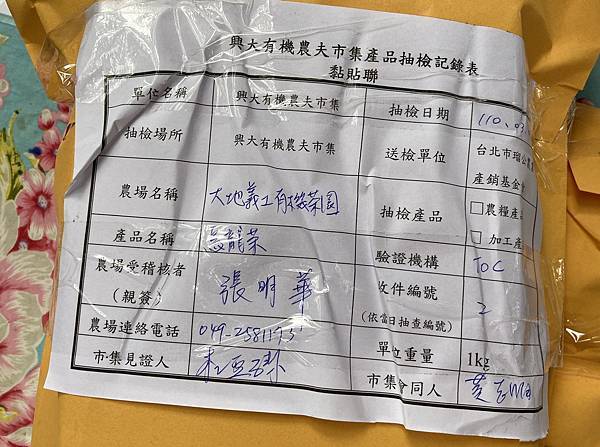 興大有機農夫市集產品抽檢記錄表
黏貼聯
單位名稱 興大有機農夫市集 抽檢日期 110.03.
抽檢場所 興大有機農夫市集 送檢單位 台北市瑠公農業
產銷基金會
農場名稱 大地義工有機菜園 抽檢產品 □農糧產品
□加工產
產品名稱 驗證機構 TOC
農場受稽核者
(親簽) 張明華 收件編號
(依當日抽查編號) 2
農場連絡電話 單位重量 1kg
市集見證人 市集會同人